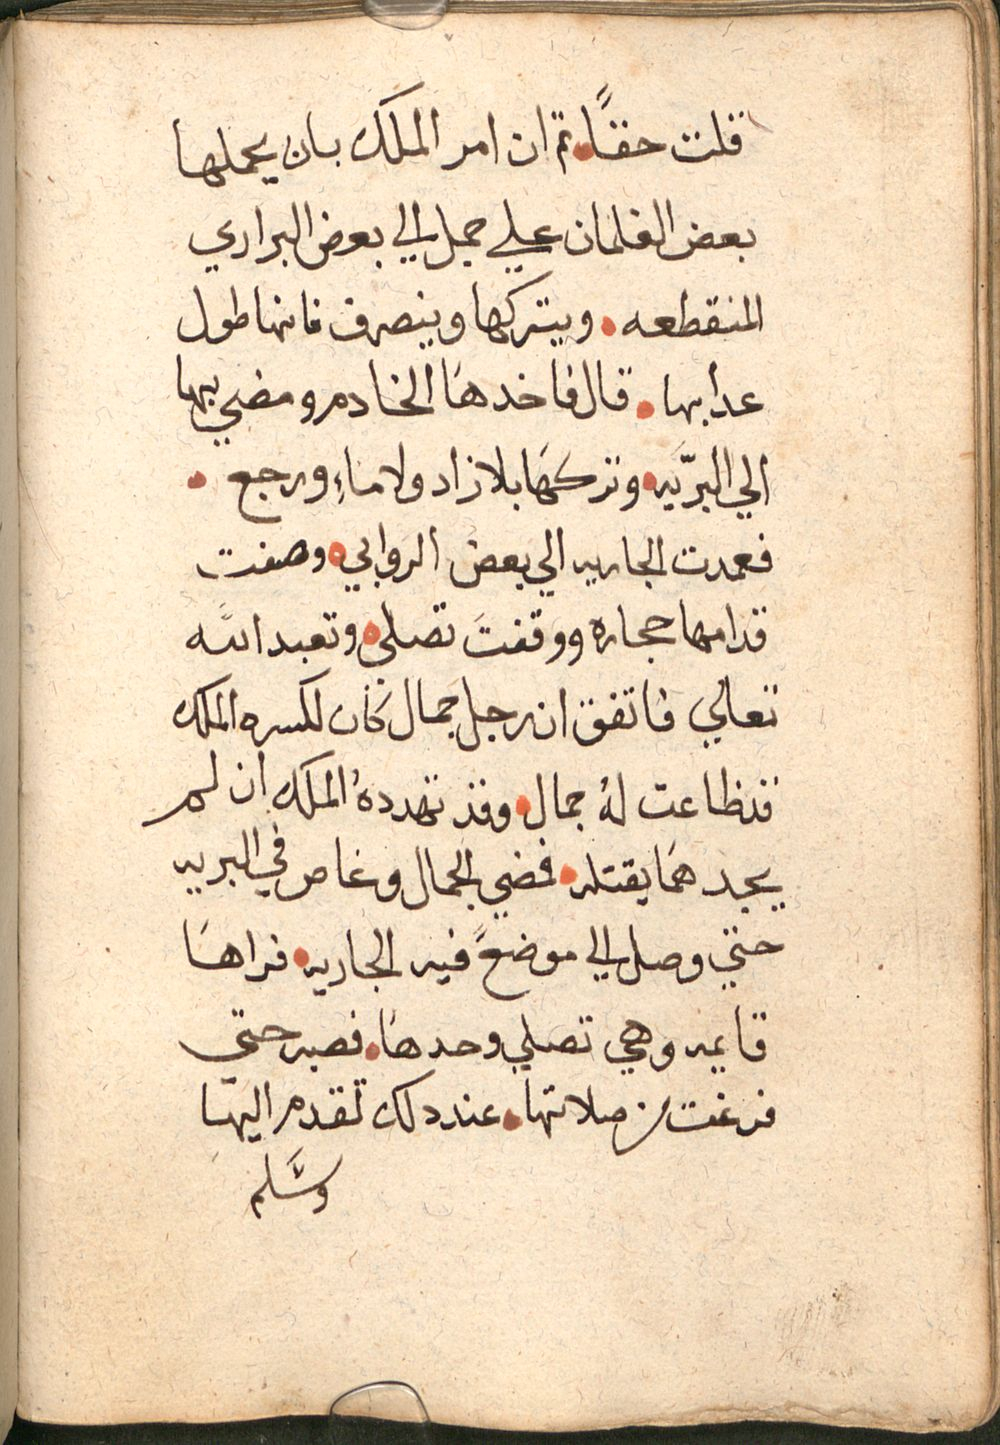 قلت حقًا. تم ان امر الملك بان يحملها
بعض الغلمان علي جمل الي بعض البراري
المنقطعه. ويتركها وينصرف فانها طول
عدابها. قال فاخدها الخادم ومضي بها
الي البرّيه. وتركها بلا زاد ولا ماء ورجع.
فعمدت الجاريه الي بعض الروابي. وصفت
قدامها حجاره ووقفت تصلي. وتعبد الله
تعالي فاتفق ان رجل جمال كان لكسره الملك
قد ظاعت لهُ جمال. وقد تهددهُ الملك ان لم
يجدهما يقتله. فمضي الجمال وغاص في البريه
حتي وصل الي موضعً فيه الجاريه. فراها
قايمه وهي تصلي وحدها. فصبر حتي
فرغت من صلاتها. عند دلك تقدم اليها
وسَّلم